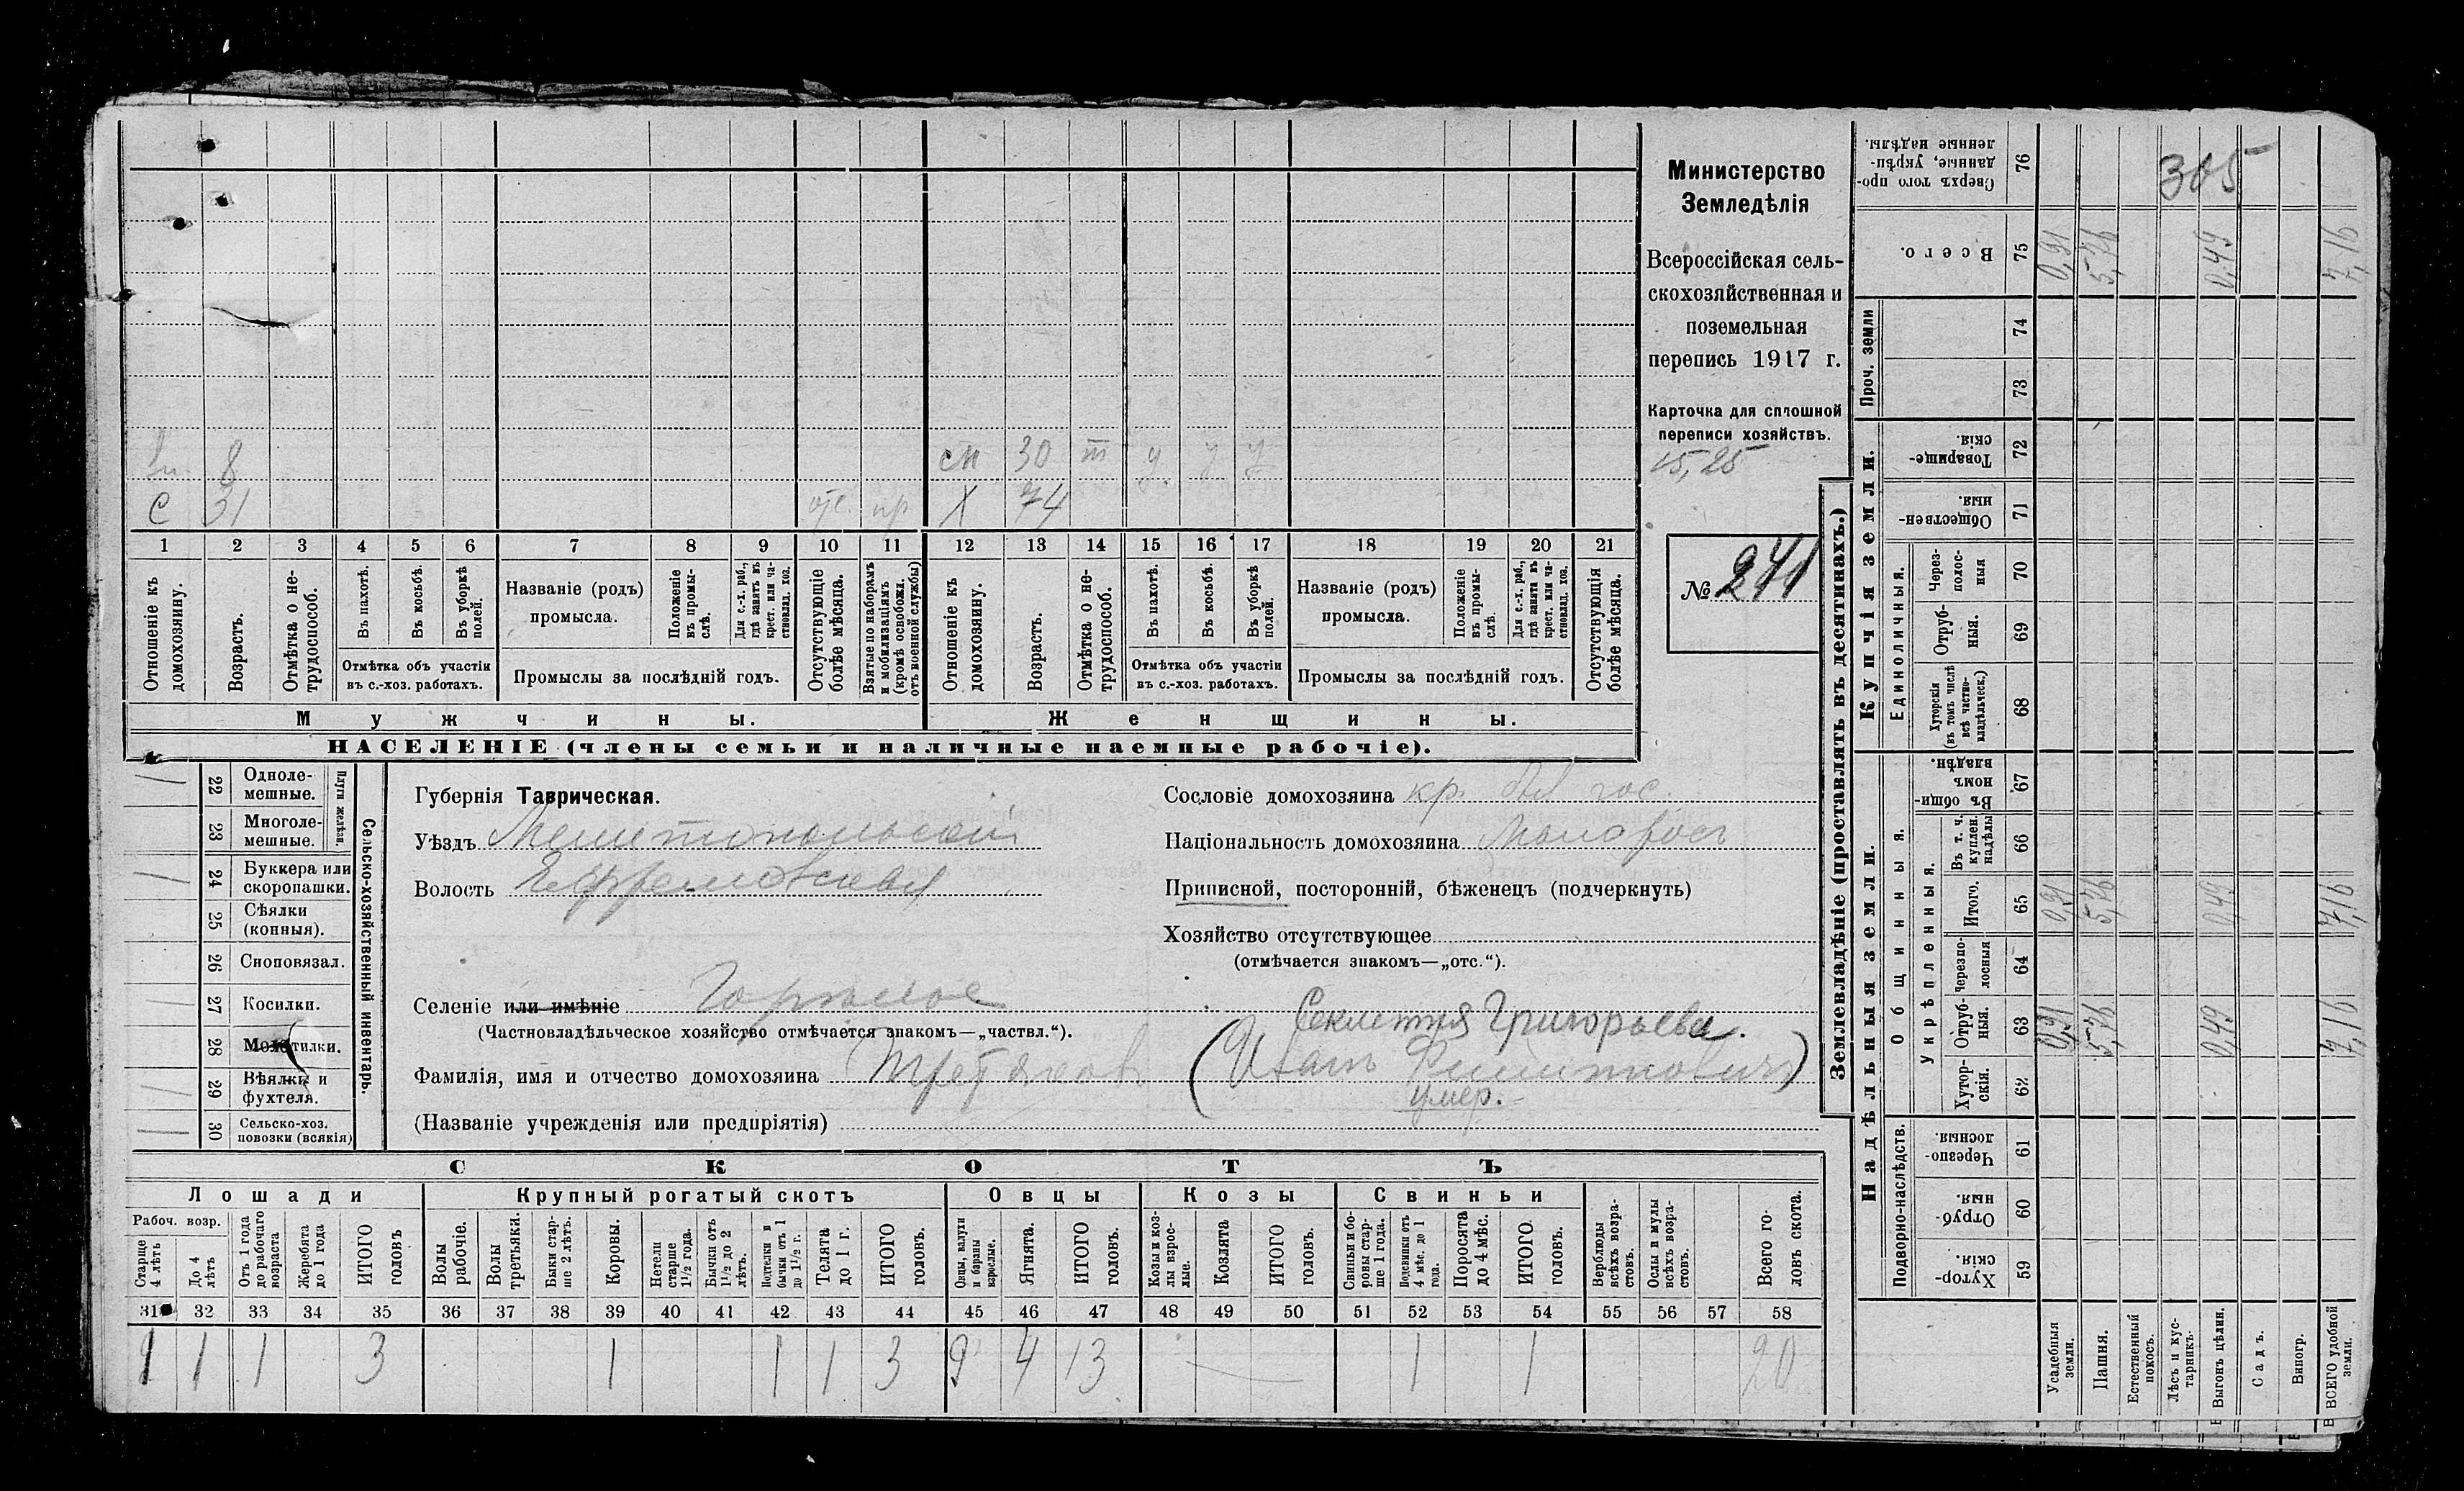 Министерство
Земледѣлія
Всероссійская сель-
скохозяйственная и
поземельная
перепись 1917 г.
Карточка для сплошной
переписи хозяйствъ.
15,25
№ 241
8 см 30 т у у у
С 31 отс. пр Х 74
1 2 3 4 5 6 7 8 9 10 11 12 13 14 15 16 17 18 19 20 21
Отношеніе къ домохозяину.
Возрастъ.
Отмѣтка о не-трудоспособ.
Въ пахотѣ.
Въ косьбѣ.
Въ уборкѣ полей.
Отмѣтка объ участіи
въ с.-хоз. работахъ.
Названіе (родъ)
промысла.
Положеніе въ промы-слѣ.
Для с.-х. раб., гдѣ занятъ въ крест. или ча-стновлад. хоз.
Промыслы за послѣдній годъ.
Отсутствующіе болѣе мѣсяца.
Взятые по наборамъ и мобилизаціямъ (кромѣ освобожд. отъ военной службы)
Отношеніе къ домохозяину.
Возрастъ.
Отмѣтка о не-трудоспособ.
Въ пахотѣ.
Въ косьбѣ.
Въ уборкѣ полей.
Отмѣтка объ участіи
въ с.-хоз. работахъ.
Названіе (родъ)
промысла.
Положеніе въ промы-слѣ.
Для с.-х. раб., гдѣ занята въ крест. или ча-стновлад. хоз.
Промыслы за послѣдній годъ.
Отсутствующія болѣе мѣсяца.
Мужчины. Женщины.
НАСЕЛЕНІЕ (члены семьи и наличные наемные рабочіе).
Сельско-хозяйственный инвентарь.
Плуги желѣзн.
22 Одноле-мешные.
23 Многоле-мешные.
24 Буккера или скоропашки.
25 Сѣялки (конныя).
26 Сноповязал.
27 Косилки.
28 Молотилки.
29 Вѣялки и фухтеля.
30 Сельско-хоз. повозки (всякія)
Губернія Таврическая.
Уѣздъ Мелитопольскій
Волость Ефремовская
Селеніе или имѣніе Горькое
(Частновладѣльческое хозяйство отмѣчается знакомъ—„частвл.“).
Сословіе домохозяина кр. бы гос.
Національность домохозяина Малорос
Приписной, посторонній, бѣженецъ (подчеркнуть)
Хозяйство отсутствующее
(отмѣчается знакомъ—„отс.“).
Секлетия Григорьева.
Фамилія, имя и отчество домохозяина Третяков (Иван Филиппович)
умер.
(Названіе учрежденія или предпріятія)
СКОТЪ
Лошади Крупный рогатый скотъ Овцы Козы Свиньи
Рабоч. возр.
Старше 4 лѣтъ
До 4 лѣтъ
Отъ 1 года до рабочаго возраста
Жеребята до 1 года
ИТОГО головъ
Волы рабочіе.
Волы третьяки.
Быки стар-ше 2 лѣтъ.
Коровы.
Нетели старше 1½ года.
Бычки отъ 1½ до 2 лѣтъ.
Подтелки и бычки отъ 1 до 1½ г.
Телята до 1 г.
ИТОГО головъ.
Овцы, валухи и бараны взрослые.
Ягнята.
ИТОГО головъ.
Козы и коз-лы взрос-лые.
Козлята
ИТОГО головъ.
Свиньи и бо-ровы стар-ше 1 года.
Подсвинки отъ 4 мѣс. до 1 года.
Поросята до 4 мѣс.
ИТОГО головъ.
Верблюды всѣхъ возра-стовъ.
Ослы и мулы всѣхъ возра-стовъ.
Всего го-ловъ скота.
31 32 33 34 35 36 37 38 39 40 41 42 43 44 45 46 47 48 49 50 51 52 53 54 55 56 57 58
1 1 1 3 1 1 1 3 9 4 13 — 1 1 20
Землевладѣніе (проставлять въ десятинахъ.)
Надѣльныя земли. Купчія земли. Проч. земли
Подворно-наслѣдств. Общинныя. Укрѣпленныя. Единоличныя.
Сверхъ того про-данные, укрѣп-ленные надѣлы. 76 305
Всего. 75 0,91 5,76 0,49 7,16
74
73
Товарище-скія. 72
Обществен-ныя. 71
Через-полос-ныя 70
Отруб-ныя. 69
Хуторскія (въ томъ числѣ всѣ частно-владѣльческ.) 68
Въ общи-номъ владѣн. 67
Въ т. ч. куплен. надѣлы 66
Итого. 65 0,91 5,76 0,49 7,16
Черезпо-лосныя 64
Отруб-ныя. 63 0,91 5,76 0,49 7,16
Хутор-скія. 62
Черезпо-лосныя. 61
Отруб-ныя. 60
Хутор-скія. 59
Усадебныя земли.
Пашня.
Естественный покосъ.
Лѣсъ и кус-тарникъ.
Выгонъ цѣлин.
Садъ.
Виногр.
ВСЕГО удобной земли.